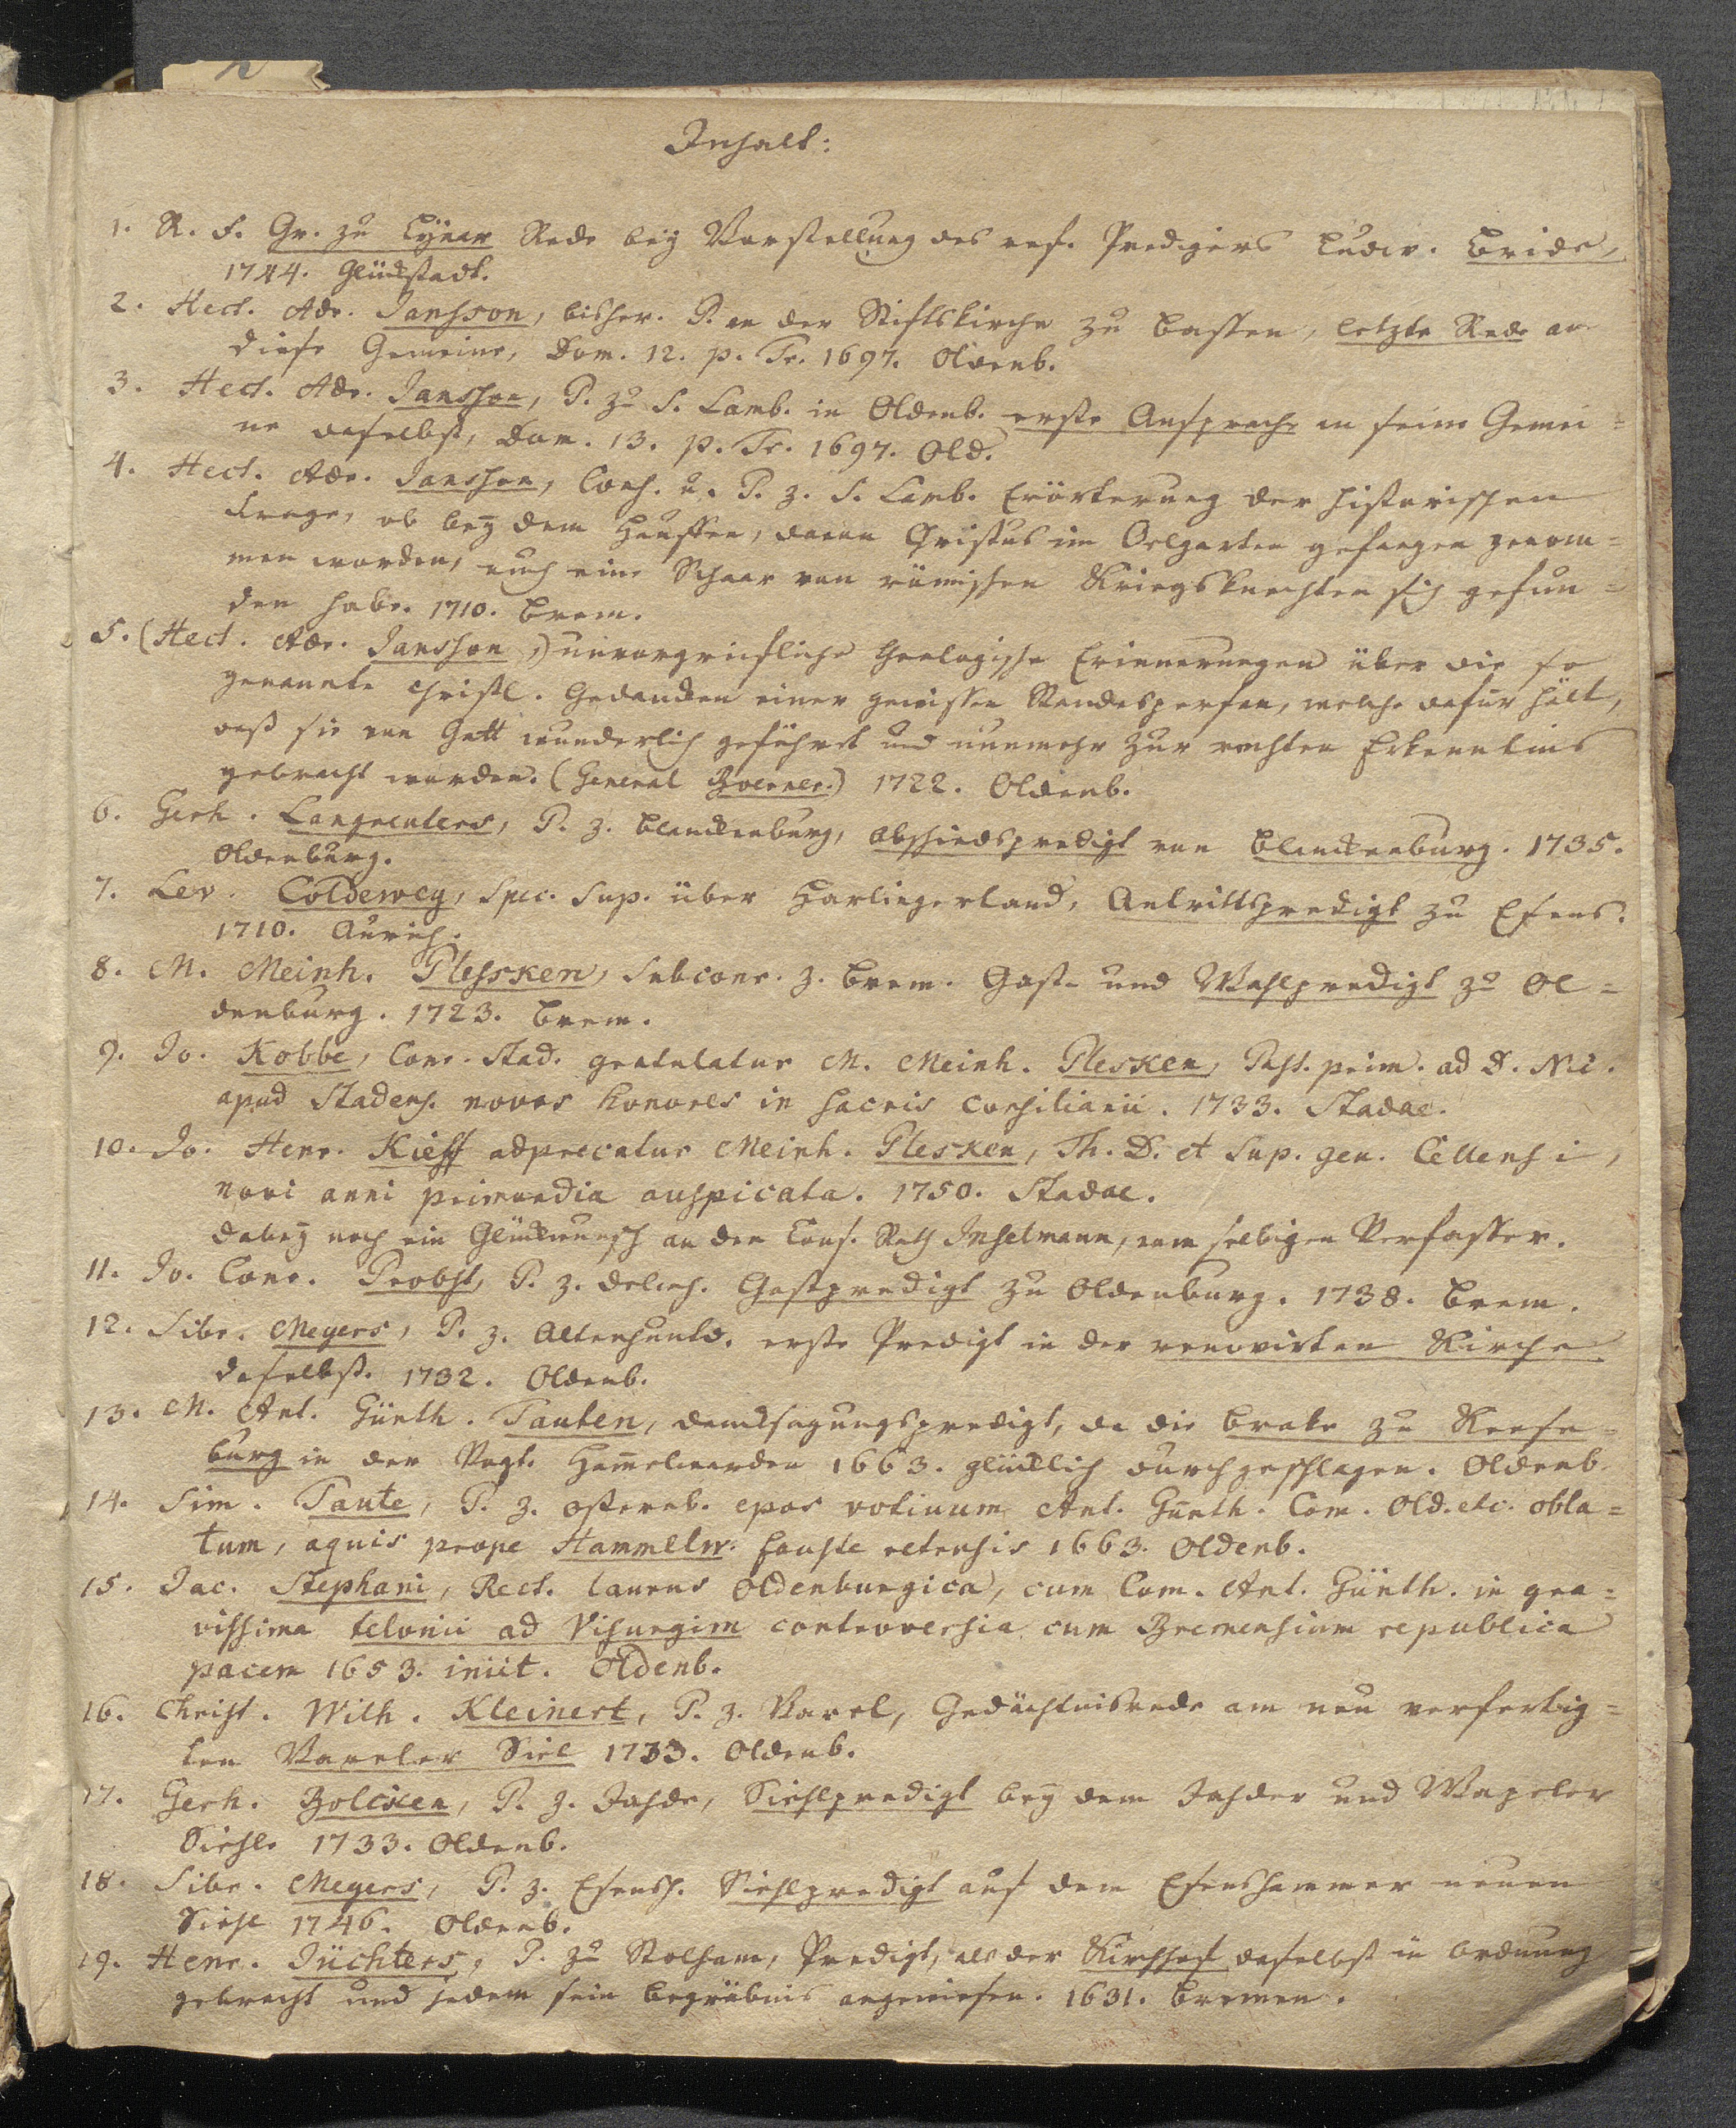 Inhalt:
1. R. F. Gr. zu Lÿnar Rede beÿ Vorstellung des ref. Predigers Ludw. Bride,
1744. Glückstadt.
2. Hect. Adr. Jansson, bisher. P. an der Stiftskirche zu Bassen, letzte Rede an
diese Gemeine, Dom. 12. p. Tr. 1697. Oldenb.
3. Hect. Adr. Jansson, P. zu S. Lamb. in Oldenb. erste Ansprache an seine Gemei=
ne daselbst, Dom. 13. p. Tr. 1697. Old.
4. Hect. Adr. Jansson, Cons. u. P. z. S. Lamb. Erörterung der historischen
Frage, ob beÿ dem Hauffen, davon Christus im Oelgarten gefangen genom=
men worden, auch eine Schaar von römischen Kriegsknechten sich gefun=
den habe. 1710. Brem.
5. (Hect. Adr. Jansson,) unvorgreifliche theologische Erinnerungen über die so
genannte Christl. Gedancken einer gewissen Standesperson, welche dafür hält,
daß sie von Gott wunderlich geführet und nunmehr zur rechten Erkenntnis
gebracht worden. (General Boerner.) 1722. Oldenb.
6. Gerh. Langreuters, P. z. Blanckenburg, Abschiedspredigt von Blanckenburg. 1735.
Oldenburg.
7. Lev. Coldewey, Spec. Sup. über Harlingerland, Antrittspredigt zu Esens.
1710. Aurich.
8. M. Meinh. Plessken, Subconr. z. Brem. Gast- und Wahlpredigt zu Ol=
denburg. 1723. Brem.
9. Jo. Kobbe, Conr. Stad. gratulatur M. Meinh. Plesken, Past. prim. ad D. Nic.
apud Stadens. novos honores in sacris consiliarii. 1733. Stadae.
10. Jo. Henr. Kieff adprecatur Meinh. Plesken, Th. D. et Sup. gen. Cellensi,
novi anni primordia auspicata. 1750. Stadae.
dabeÿ noch ein Glückwunsch an den Cons. Rath Inselmann, vom selbigen Verfasser.
11. Jo. Conr. Probst, P. z. Delmh. Gastpredigt zu Oldenburg. 1738. Brem.
12. Sibr. Meyers, P. z. Altenhuntd. erste Predigt in der renovirten Kirche
daselbst. 1732. Oldenb.
13. M. Ant. Günth. Tauten, Dancksagungspredigt, da die Brake zu Reese=
burg in der Vogt. Ham̄elwarden 1663. glücklich durchgeschlagen. Oldenb.
14. Sim. Taute, P. z. Osternb. epos votivum Ant. Günth. Com. Old. etc. obla=
tum, aquis prope Hammelw. fauste retensis 1663. Oldenb.
15. Jac. Stephani, Rect. laurus Oldenburgica, cum Com. Ant. Günth. in gra=
vissima telonii ad Visurgim controversia cum Bremensium republica
pacem 1653. iniit. Oldenb.
16. Christ. Wilh. Kleinert, P. z. Varel, Gedächtnisrede am neu verfertig=
ten Vareler Siel 1733. Oldenb.
17. Gerh. Bolcken, P. z. Jahde, Siehlpredigt beÿ dem Jahder und Wapeler
Siehle 1733. Oldenb.
18. Sibr. Meyers, P. z. Esensh. Siehlpredigt auf dem Esenshammer neuen
Siehl 1746. Oldenb.
19. Henr. Jüchters, P. zu Stolham, Predigt, als der Kirchhof daselbst in Ordnung
gebracht und jedem sein Begräbnis angewiesen. 1631. Bremen.